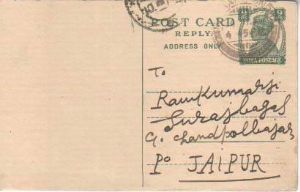 POST CARD
REPLY
ADDRESS ONLY
INDIA POSTAGE
To
Ramkumarji
Surajbagas
C/o Chandpolbazar
Po JAIPUR